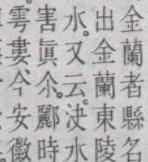 金蘭者縣名
出金蘭東陵
水又云决水
害眞尒酈時
雩婁今安徽